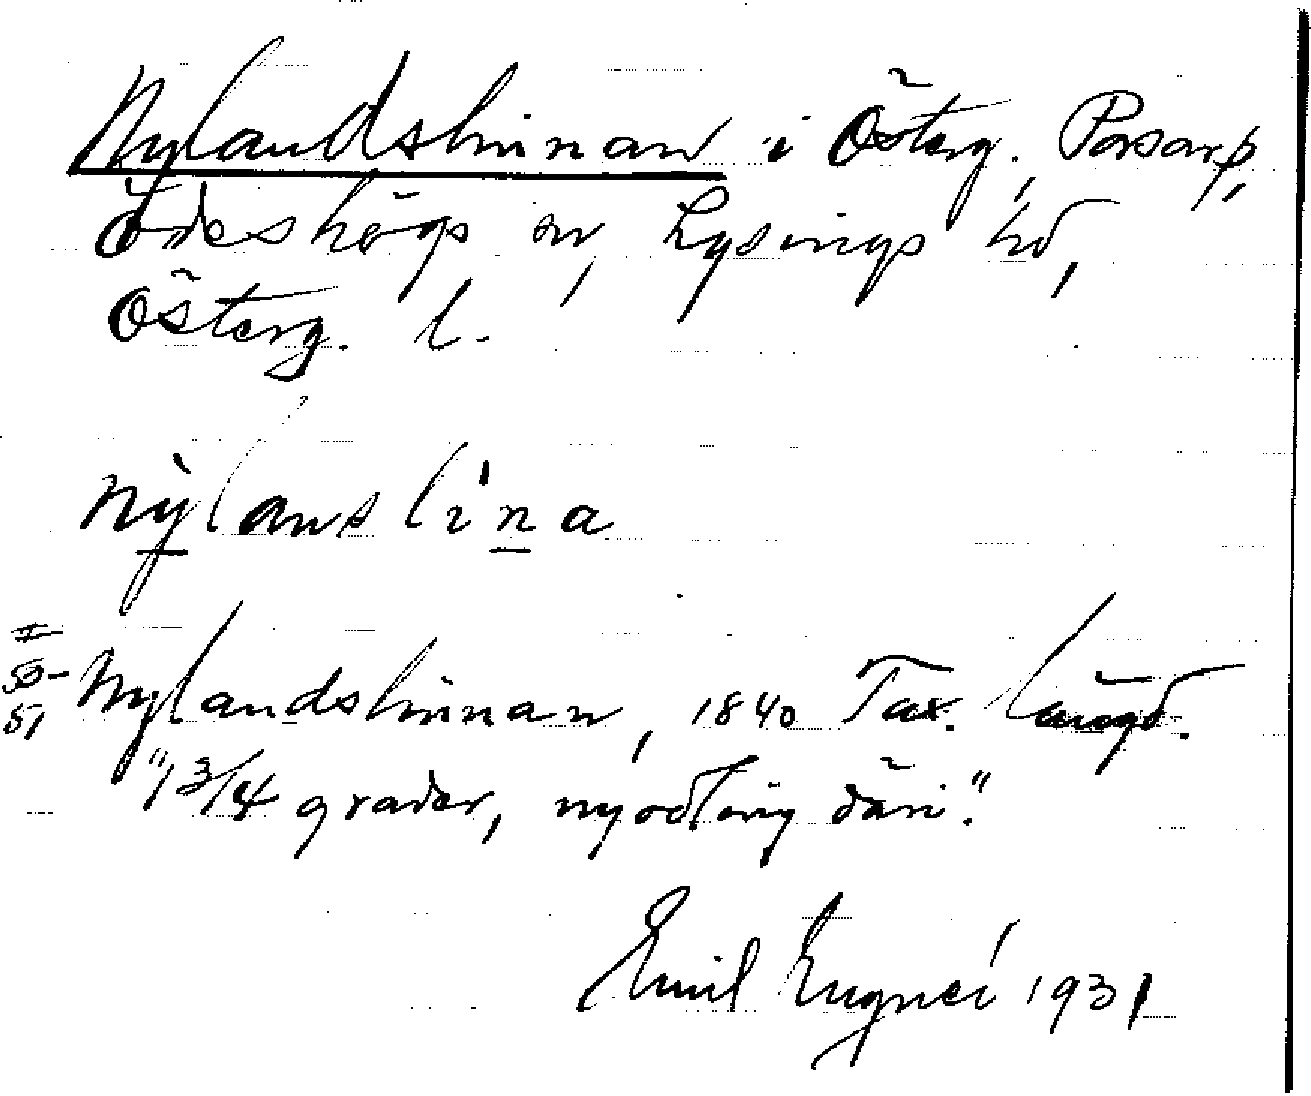 Nylandslinnan i Österg., Porsarp,
Ödeshögs sn, Lysings hd,
Österg. l.
nỳlanslìna
II
50-
51
Nylandslinnan, 1840 Tax. längd.
"1 3/4 grader, nyodling däri."
Emil Eugnéi 1931